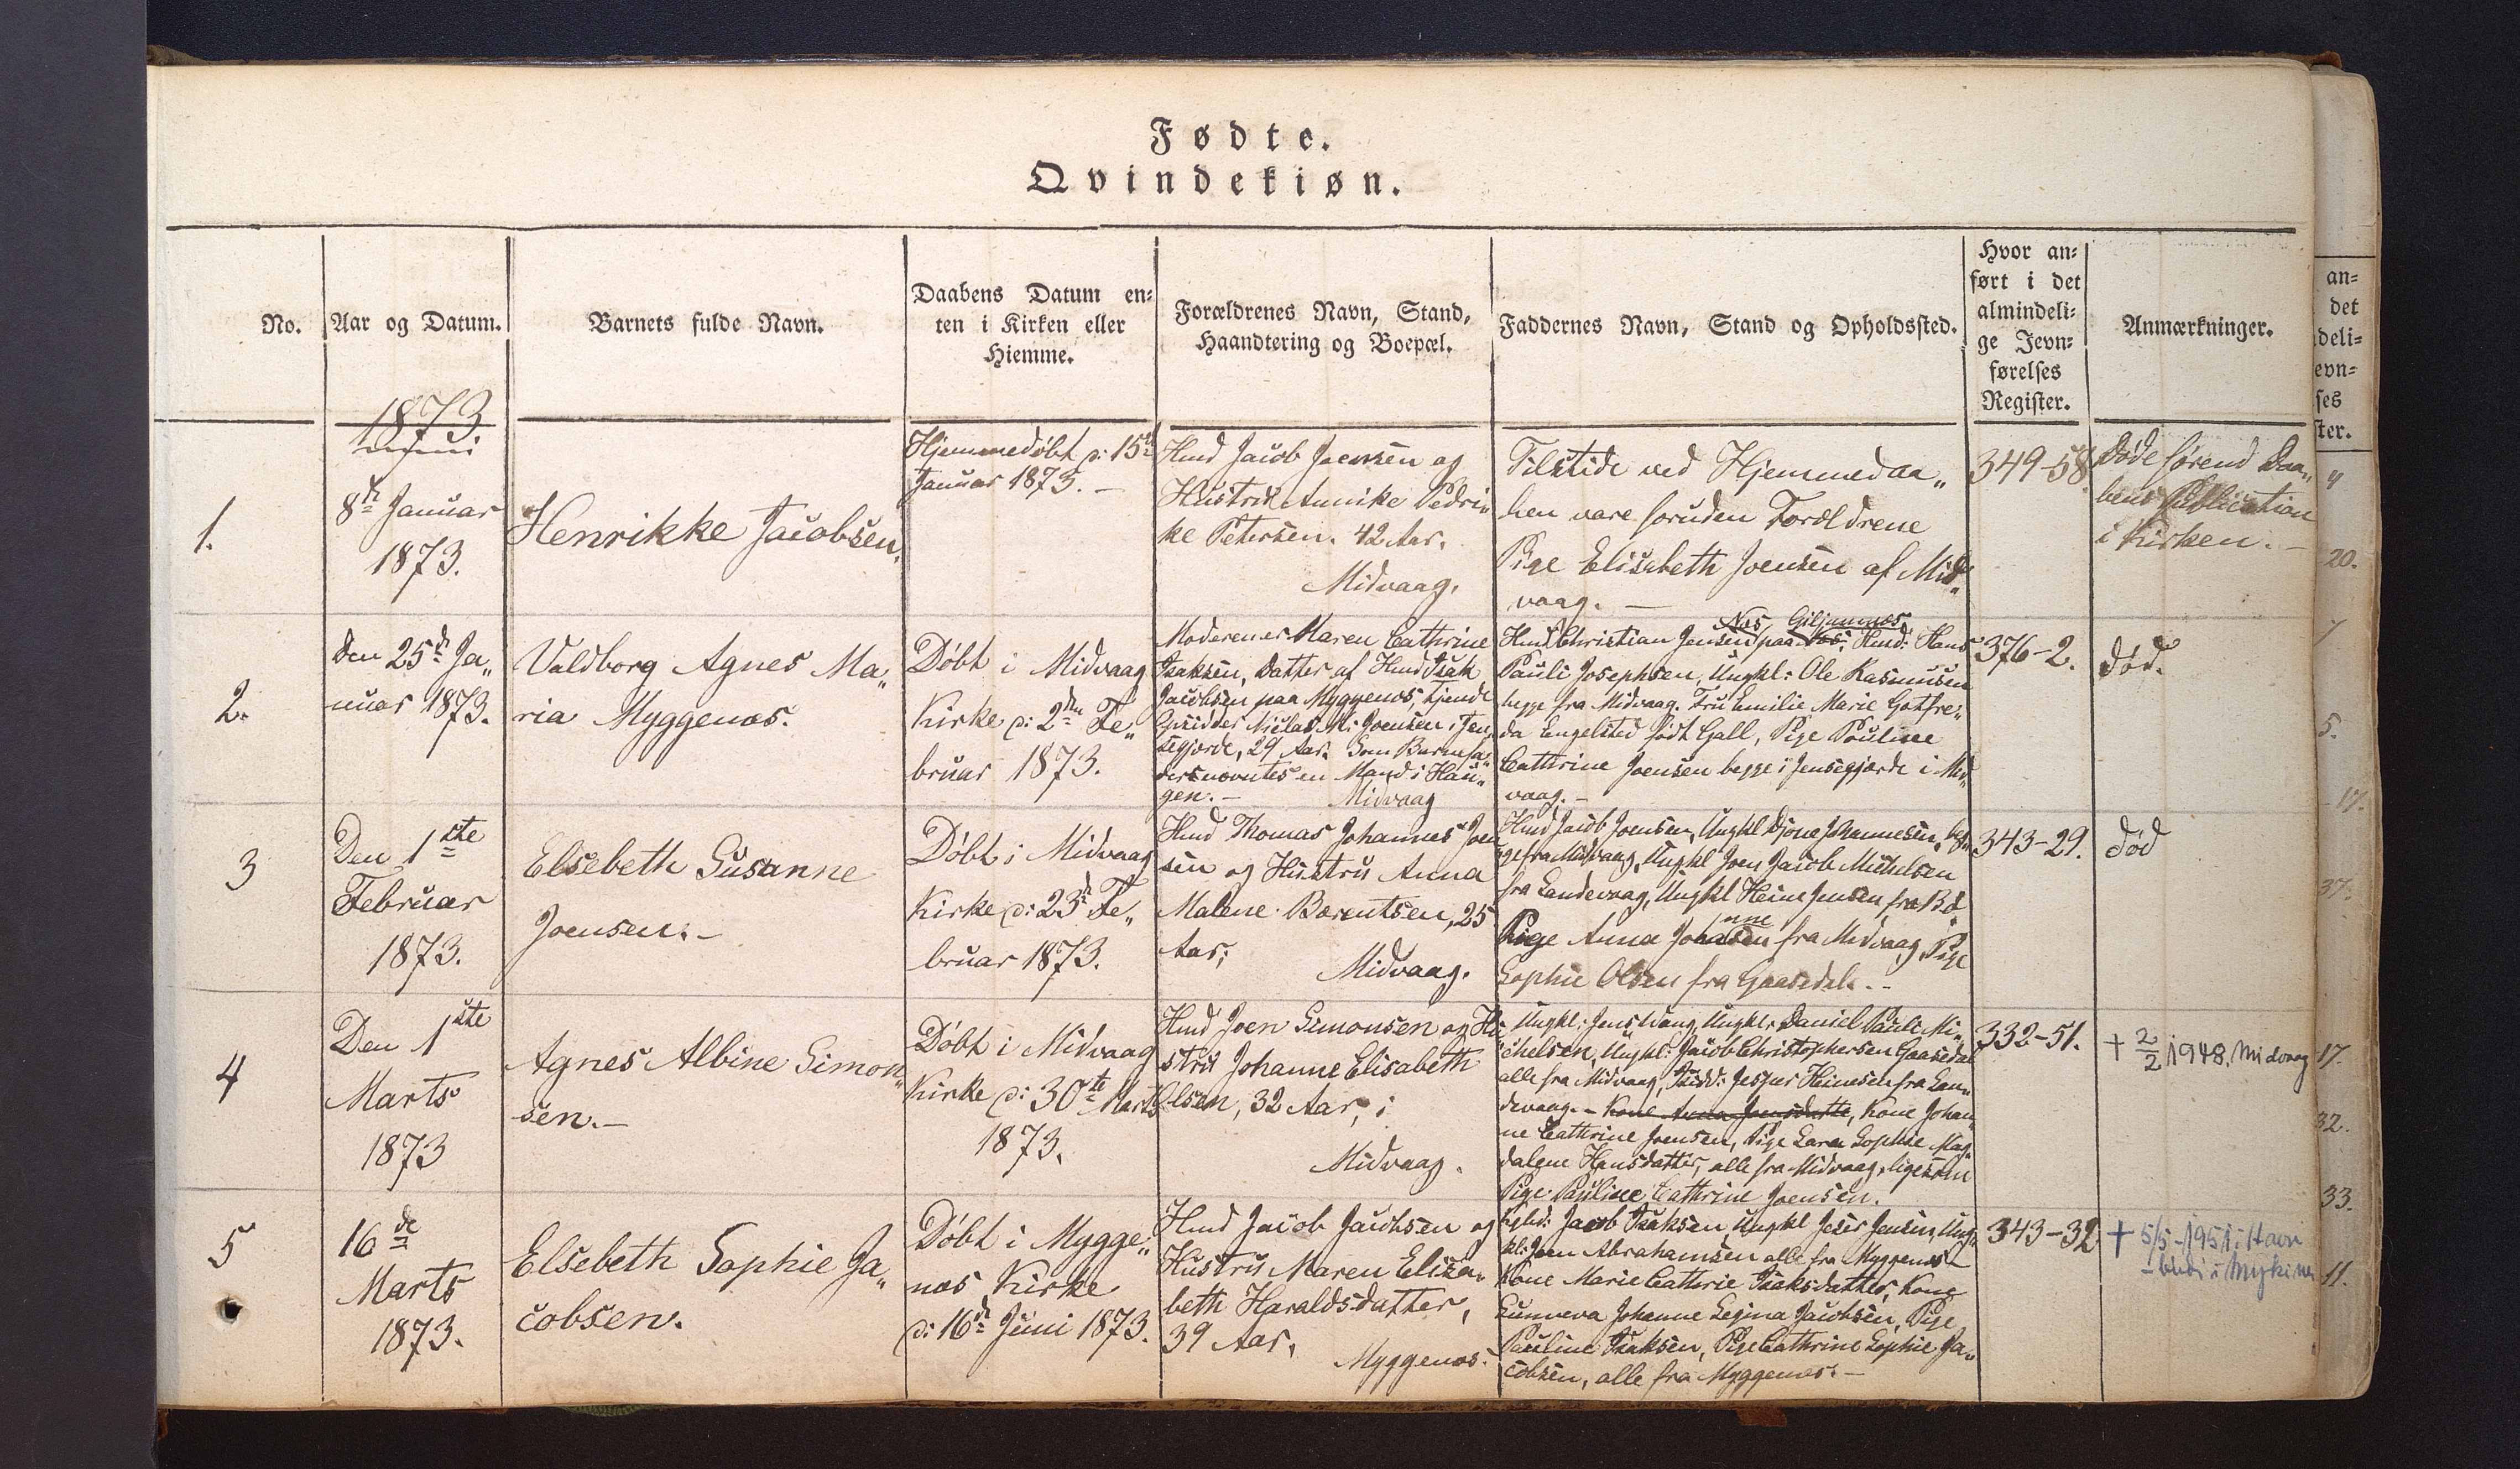 Fødte.
Qvindekiøn.
No.
Aar og Datum.
Barnets fulde Navn.
Daabens Datum en=
ten i Kirken eller
Hiemme.
Forældrenes Navn, Stand,
Haandtering og Boepæl.
Faddernes Navn, Stand og Opholdssted.
Hvor an=
ført i det
almindeli=
ge Jevn=
førelses
Register.
Anmærkninger.
1873
1.
8de Januar
1873.
Henrikke Jacobsen.
Hjemmedøbt d: 15de
Januar 1873. —
Hmd Jacob Joensen og
Hustru Annike Pedri„
ke Petersen. 42 Aar.
Midvaag.
Tilstede ved Hjemmedaa„
ben vare foruden Forældrene
Pige Elisabeth Joensen af Mid„
vaag. —
349-58.
Døde førend Daa„
bens Publication
i Kirken. —
2.
Den 25de Ja„
nuar 1873.
Valdborg Agnes Ma„
ria Myggenæs.
Døbt i Midvaag
Kirke d: 2den Fe„
bruar 1873.
Moderen er Maren Cathrine
Isaksen, Datter af Hmd Isak
Jacobsen paa Myggenæs, tjende
Joensen i Jen„
segjærde, 29 Aar. Som Barnefa„
der nævntes en Mand i Hau„
gen. — Midvaag
Næs Giljumnæs
Hmd Christian Jensen paa Næs, Hmd: Hans
Pauli Josephsen, Ungkl: Ole Rasmussen
begge fra Midvaag. Fru Emilie Marie Gotfre„
da Engelsted født Gall, Pige Pouline
Cathrine Joensen begge i Jensegjærde i Mid„
vaag. —
376-2.
død.
3
Den 1ste
Februar
1873.
Elsebeth Susanne
Joensen. —
Døbt i Midvaag
Kirke d: 23de Fe„
bruar 1873.
Hmd Thomas Johannes Joen
sen og Hustru Anna
Malene Barentsen, 25
Aar;
Midvaag.
Hmd Jacob Joensen, Ungkl Djone Johannesen, beg„
ge fra Midvaag, Ungkl Joen Jacob Michelsen
fra Sandevaag, Ungkl Heine Jensen fra Bø
Pige Anna Johannesen fra Midvaag, Pige
Sophie Olsen fra Gaasedal. —
343-29.
død
4
Den 1ste
Marts
1873
Agnes Albine Simon„
sen. —
Døbt i Midvaag
Kirke d: 30te Marts
1873.
Hmd Joen Simonsen og Hu„
stru Johanne Elisabeth
Olsen, 32 Aar, i
Midvaag.
Ungkl: Jens Vang, Ungkl: Daniel Pauli Mi„
chelsen, Ungkl: Jacob Christophersen Gaasedal
alle fra Midvaag, Jesper Heinesen fra San„
devaag. — Kone Anna Joensdatter, Kone Johan„
ne Cathrine Joensen, Pige Sara Sophie Mag„
dalene Hansdatter, alle fra Midvaag, ligesom
Pige Pauline Cathrine Joensen.
332-51.
+ 2/2 1948. Midvaag
5
16de
Marts
1873.
Elsebeth Sophie Ja„
cobsen.
Døbt i Mygge„
næs Kirke
d: 16de Juni 1873.
Hmd Jacob Jacobsen og
Hustru Maren Elisa„
beth Haraldsdatter,
39 Aar.
Myggenæs.
Jacob Isaksen, Ungkl Jeser Jensen, Ung„
kl: Joen Abrahamsen alle fra Myggenæs —
Kone Marie Cathrie Isaksdatter, Kone
Sunneva Johanne Legina Jacobsen, Pige
Pauline Isaksen, Pige Cathrine Sophie Ja„
cobsen, alle fra Myggenæs. —
343-32
+ 5/5-1951 i Havn
— búði í Mykines
an=
det
deli=
evn=
ses
ster.
4
20.
7
5.
17.
37.
17.
32.
33.
11.